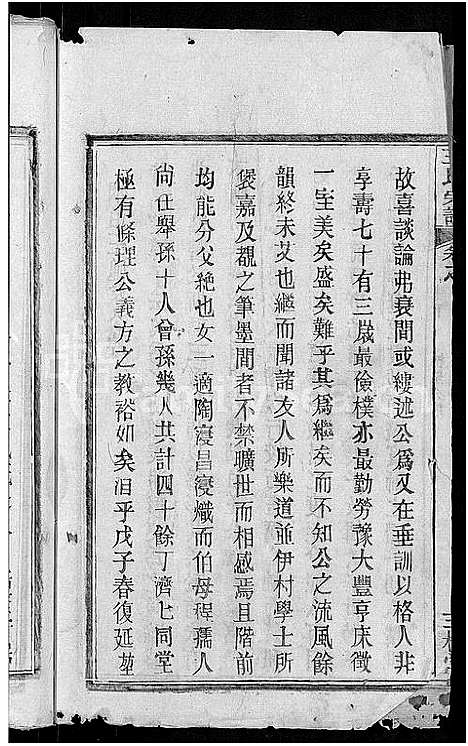 王氏宗譜
故喜談論弗衰間或縷述公爲又在垂訓以格人非
享壽七十有三歲最儉樸亦最勤勞豫大豐亨床徵
一室美矣盛矣難乎其爲繼矣而不知公之流風餘
韻終未艾也繼而聞諸友人所樂道並伊村學士所
褒嘉及覩之筆墨間者不禁曠世而相感焉且階前
均能分父絶也女一適陶寖昌寖熾而伯母程孺人
尚仕舉孫十人曾孫幾人共計四十餘丁濟匕同堂
極有條理公義方之教裕如矣洎乎戊子春復延堃
三槐堂